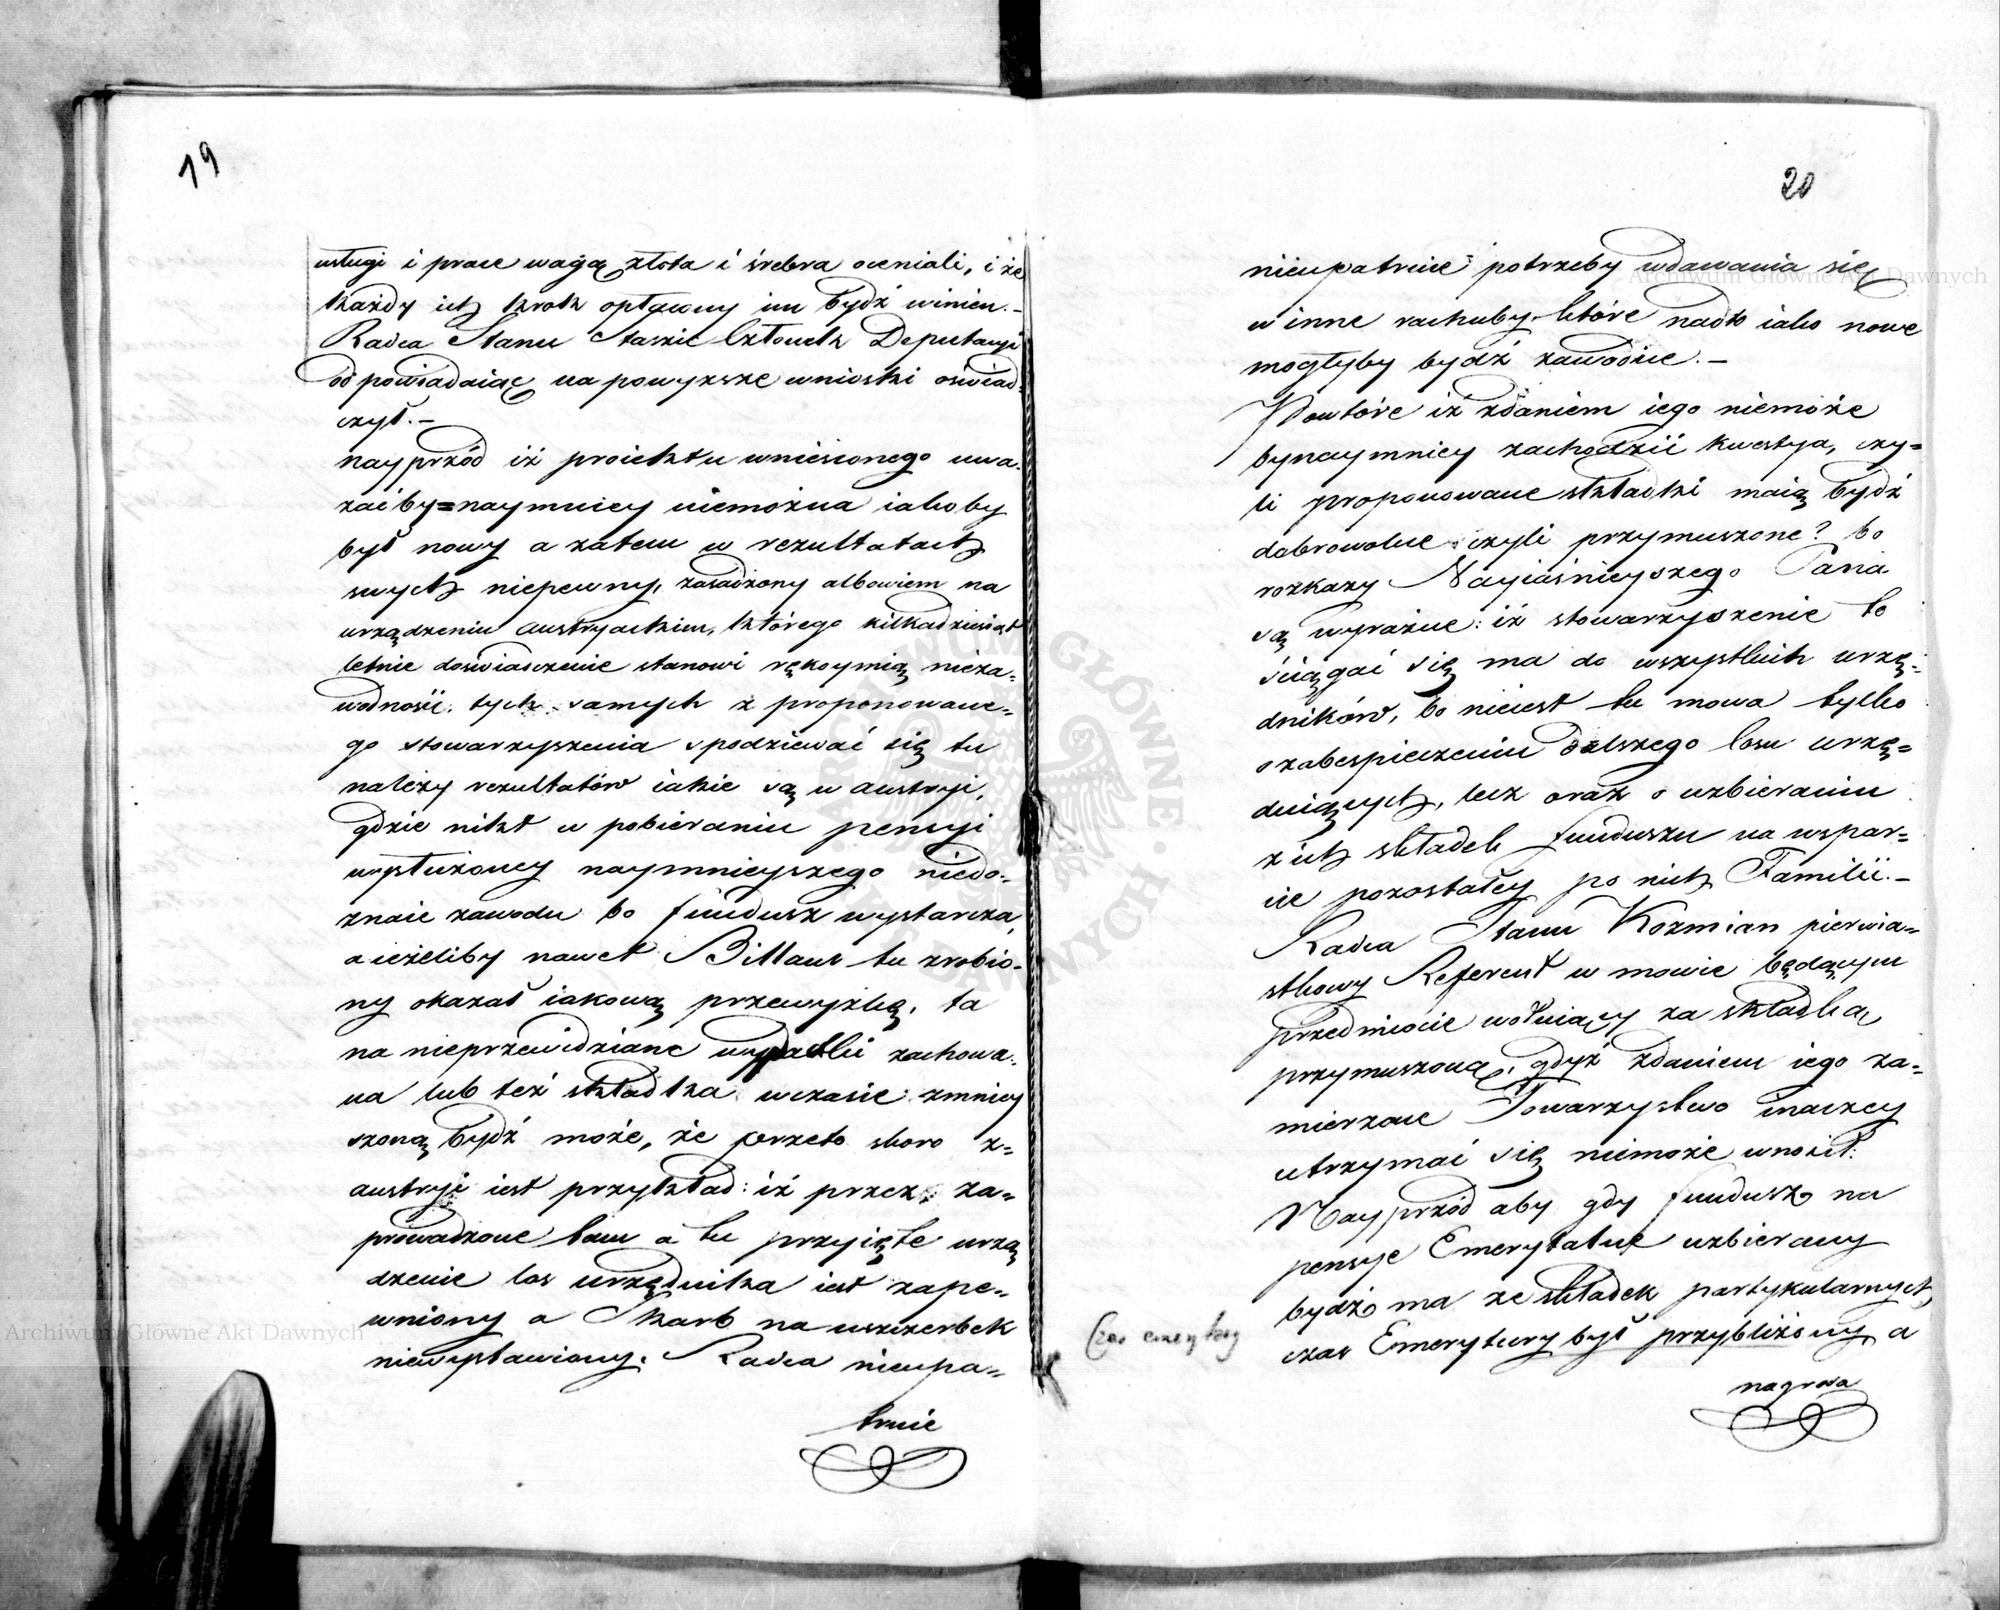 19
usługi i prace wagą złota i śrebra oceniali, i że
każdy ich krok opłacony im bydź winien.-
Radca Stanu Staszic Członek Deputacyi
odpowiadaiąc na powyższe wnioski oświad=
czył.-
nayprzód iż proiektu wniesionego uwa=
żać by=naymniey niemożna iakoby
był nowy a zatem w rezultatach
swych niepewny, zasadzony albowiem na
urządzeniu austryackim, którego kilkadziesiąt
letnie doświadczenie stanowi rękoymią nieza=
wodności; tych samych z proponowane=
go stowarzyszenia spodziewać się tu
należy rezultatów iakie są w austryi,
gdzie nikt w pobieraniu pensyi
wysłużoney naymnieyszego niedo=
znaie zawodu bo fundusz wystarcza,
a ieżeliby nawet Billans tu zrobio=
ny okazał iakową przewyżkę, ta
na nieprzewidziane wypadki zachowa=
na lub też składka w czasie zmniey
szoną bydź może, że przeto skoro z=
austryi iest przykład: iż przez za=
prowadzone tam a tu przyięte urzą
dzenie los urzędnika iest zape=
wniony a Skarb na uszczerbek
niewystawiony. Radca nieupa=
truie
20
nieupatruie potrzeby wdawania się
w inne rachuby, które nadto iako nowe
mogłyby bydź zawodne.-
Powtóre iż zdaniem iego niemoże
bynaymniey zachodzić kwestya, czy=
li proponowane składki maią bydź
dobrowolne czyli przymuszone? bo
rozkazy Nayiaśnieyszego Pana
są wyraźne: iż stowarzyszenie to
ściągać się ma do wszystkich urzę=
dników, bo nieiest tu mowa tylko
o zabespieczeniu dalszego losu urzę=
duiących, lecz oraz o uzbieraniu
z ich składek funduszu na wspar=
cie pozostałey po nich Familii.-
Radca Stanu Kozmian pierwia=
stkowy Referent w mowie będącym
przedmiocie wotuiący za składką
przymuszoną, gdyż zdaniem iego za=
mierzone Towarzystwo inaczey
utrzymać się niemoże wnosił:
Nayprzód aby gdy fundusz na
pensye Emerytalne uzbierany
bydź ma ze składek partykularnych,
Czas emerytury
czas Emerytury był przybliżony, a
nagroda
Archiwum Główne Akt Dawnych
Archiwum Główne Akt Dawnych
ARCHIWUM GŁÓWNE AKT DAWNYCH